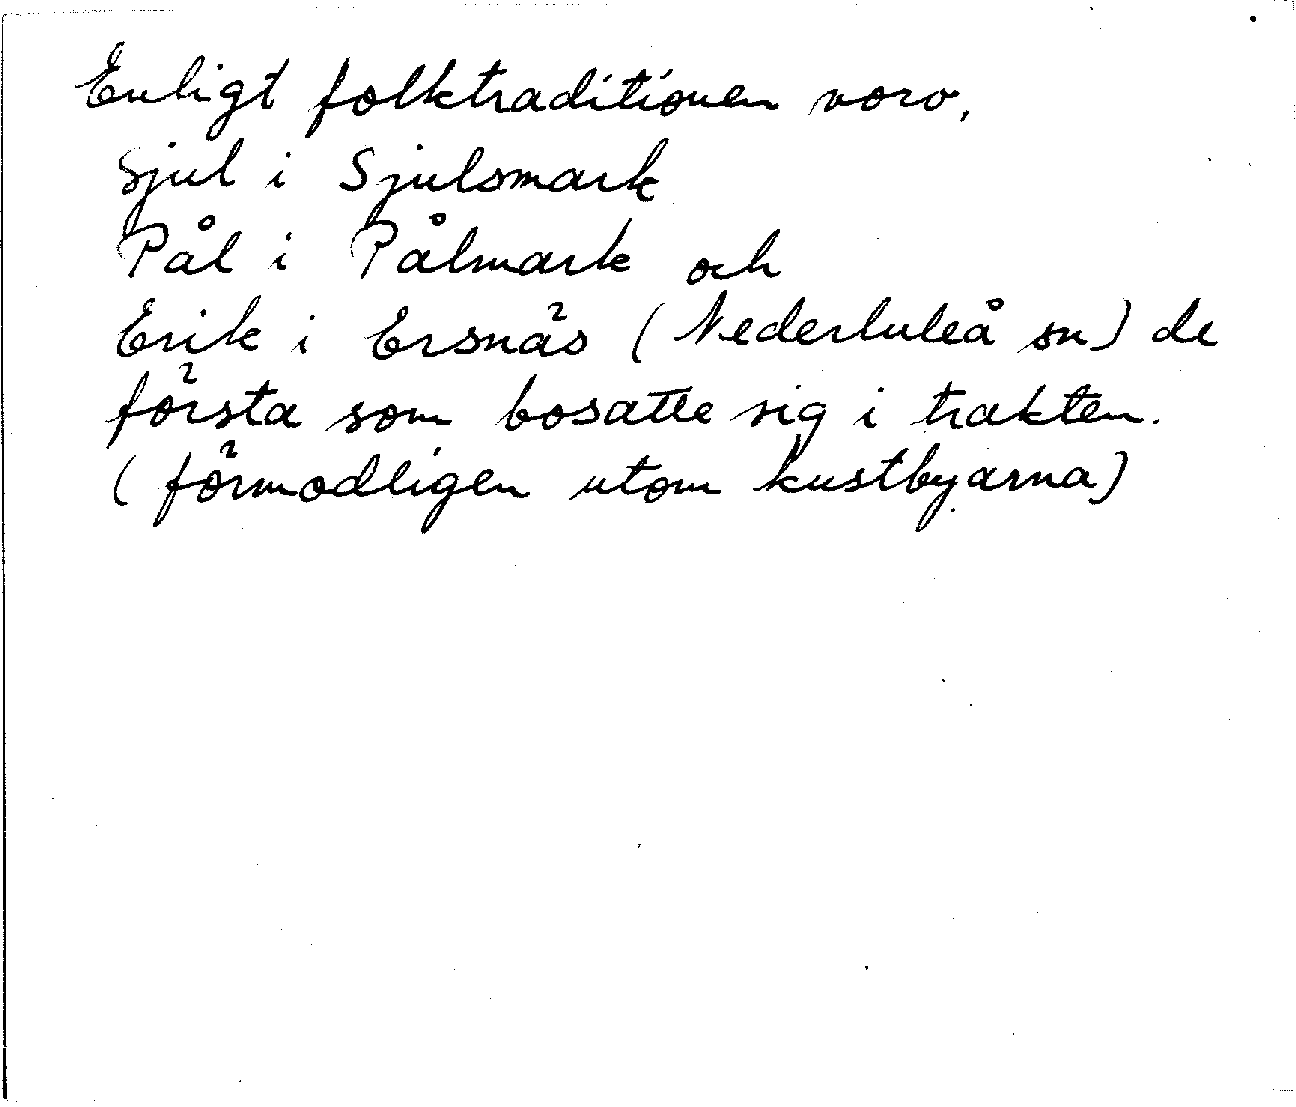 Enligt folktraditionen voro,
Sjul i Sjulsmark
Pål i Pålmark och
Erik i Ersnäs (Nederluleå sn) de
första som bosatte sig i trakten.
(förmodligen utom kustbyarna)